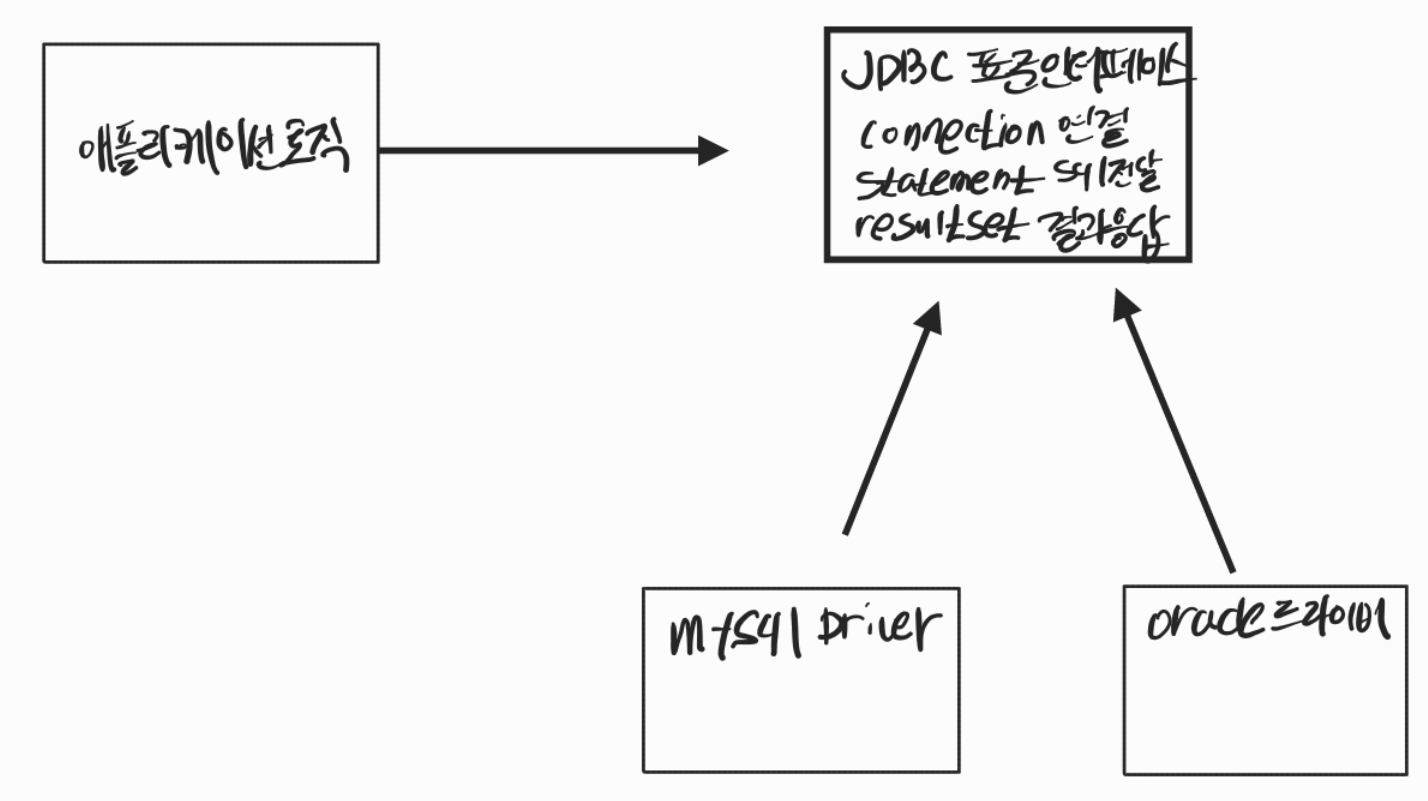 애플리케이션로직
JDBC 표준인터페이스
connection 연결
statement sql전달
resultset 결과응답
mysql Driver
oracle드라이버